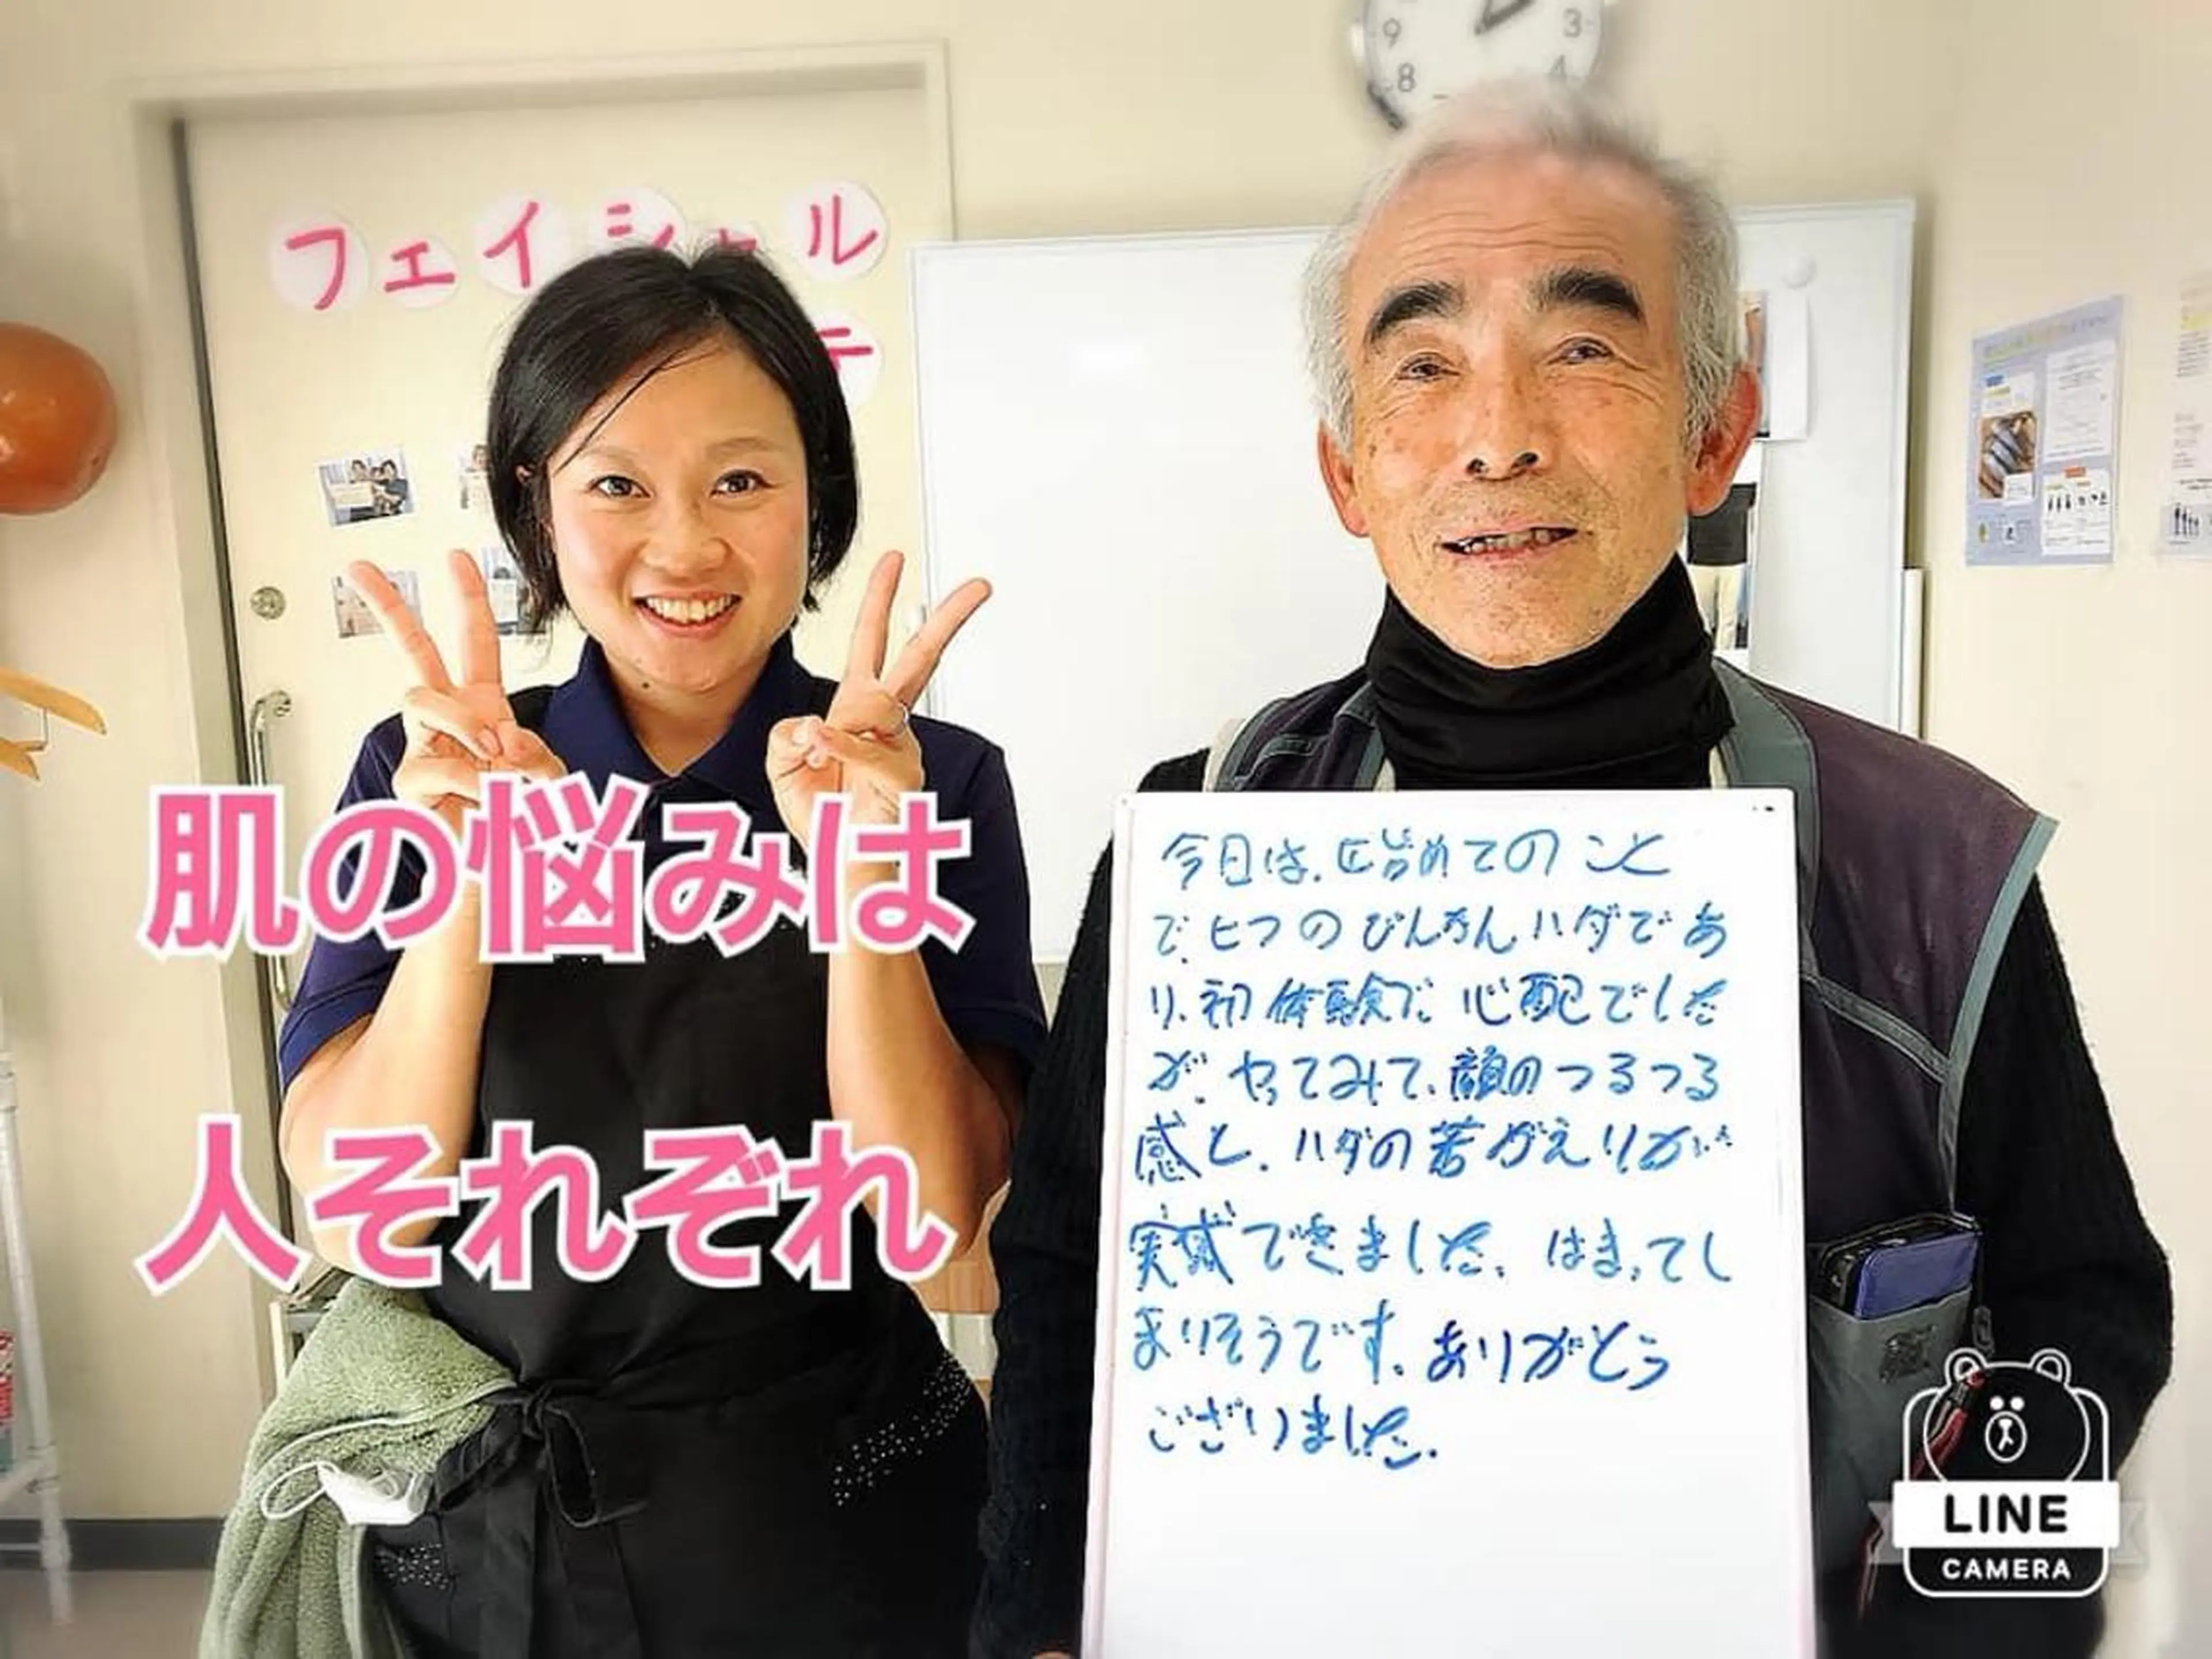 9
3
8
4
フェイシャル
テ
肌の悩みは
人それぞれ
今日は、始めてのこと
で、ヒフのびんかんハダであ
り、初体験で心配でした
が、やってみて、顔のつるつる
感と、ハダの若がえりが
実感できました、はまってし
まいそうです、ありがとう
ございました、
LINE
CAMERA